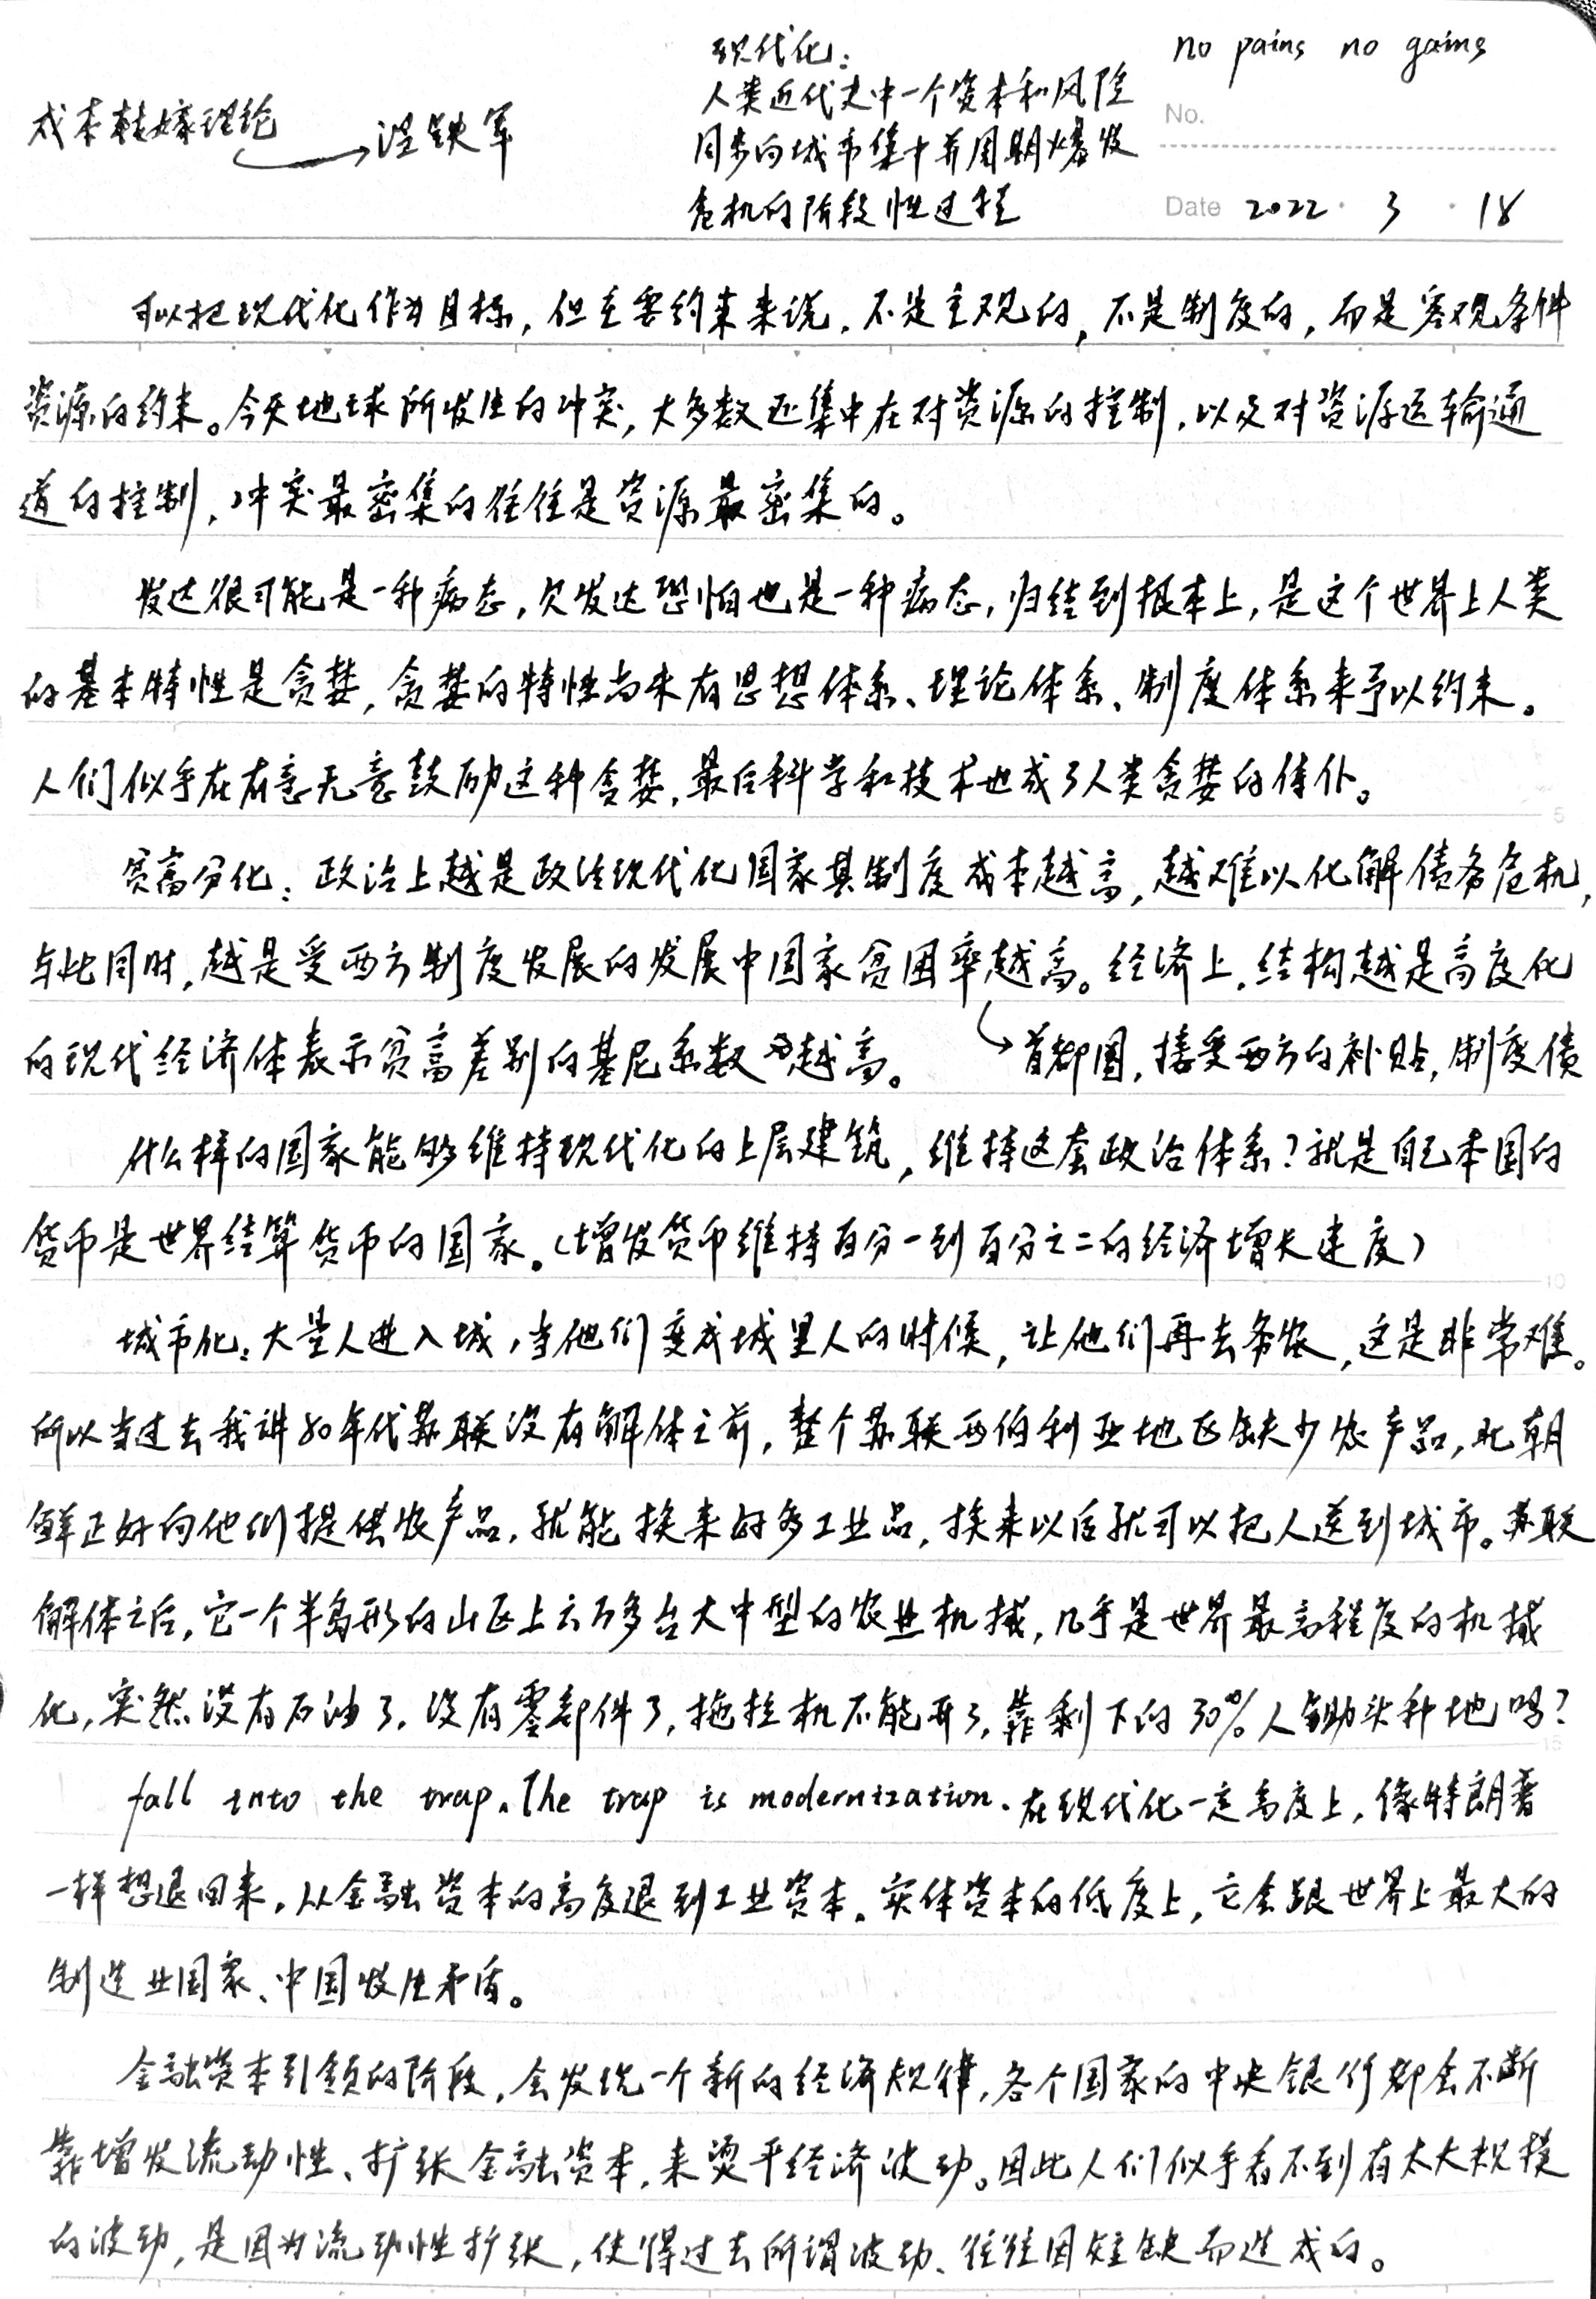 no pains no gains
现代化：
人类近代史中一个资本和风险
同步向城市集中并周期爆发
危机的阶段性过程
成本转嫁理论 → 温铁军
No.
Date 2022 · 3 · 18
可以把现代化作为目标，但主要约束来说，不是主观的，不是制度的，而是客观条件
资源的约束。今天地球所发生的冲突，大多数还集中在对资源的控制，以及对资源运输通
道的控制，冲突最密集的往往是资源最密集的。
发达很可能是一种病态，欠发达恐怕也是一种病态，归结到根本上，是这个世界上人类
的基本特性是贪婪，贪婪的特性尚未有思想体系、理论体系、制度体系来予以约束。
人们似乎在有意无意鼓励这种贪婪，最后科学和技术也成了人类贪婪的侍仆。
贫富分化：政治上越是政治现代化国家其制度成本越高，越难以化解债务危机，
与此同时，越是受西方制度发展的发展中国家贫困率越高。经济上，结构越是高度化
的现代经济体表示贫富差别的基尼系数越高。
首都圈，接受西方的补贴，制度债
什么样的国家能够维持现代化的上层建筑，维持这套政治体系？就是自己本国的
货币是世界结算货币的国家。（增发货币维持百分一到百分之二的经济增长速度）
城市化：大量人进入城，当他们变成城里人的时候，让他们再去务农，这是非常难。
所以当过去我讲80年代苏联没有解体之前，整个苏联西伯利亚地区缺少农产品，北朝
鲜正好向他们提供农产品，就能换来好多工业品，换来以后就可以把人送到城市。苏联
解体之后，它一个半岛形的山区上六万多台大中型的农业机械，几乎是世界最高程度的机械
化，突然没有石油了，没有零部件了，拖拉机不能开了，靠剩下的30%人锄头种地吗？
fall into the trap. The trap is modernization. 在现代化一定高度上，像特朗普
一样想退回来，从金融资本的高度退到工业资本、实体资本的低度上，它会跟世界上最大的
制造业国家、中国发生矛盾。
金融资本引领的阶段，会发现一个新的经济规律，各个国家的中央银行都会不断
靠增发流动性、扩张金融资本，来烫平经济波动。因此人们似乎看不到有太大规模
的波动，是因为流动性扩张，使得过去所谓波动、往往因短缺而造成的。